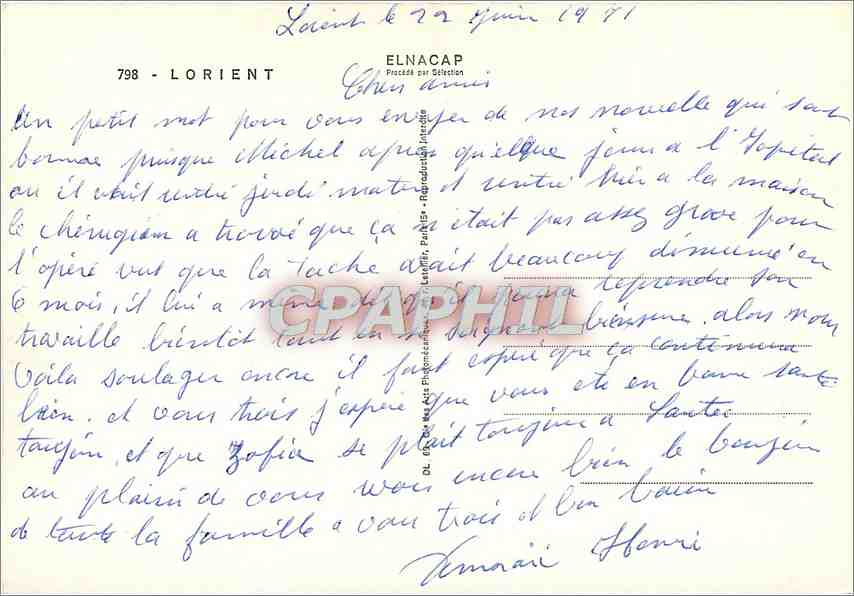 Lorient le 22 Juin 1971
ELNACAP
Procédé par Sélection
798 - LORIENT
Chers amis
Un petit mot pour vous envoyer de nos nouvelle qui sont
bonne puisque Michel apres quelque jours a l'Hopital
ou il était rentré jeudi matin et rentré hier a la maison
le chérugien a trouvé que ça n'etait pas assez grave pour
l'opéré vut que la tache avait beaucoup diminué en
6 mois, il lui a même dit qu'il pourra reprendre son
travaille bientôt tout en se soignant bien sure. alors nous
voila soulager encore il faut espéré que ça continuera
bien. et vous trois j'espère que vous ete en bonne santé
toujour, et que Zofia se plait toujour a Santec
au plaisir de vous voir encore bien le bonjour
de toute la famille a vous trois et bon baiser
Henri
DL. 69 - Cie des Arts Photomécaniques - Letellier, Paris-15e - Reproduction Interdite
CPAPHIL